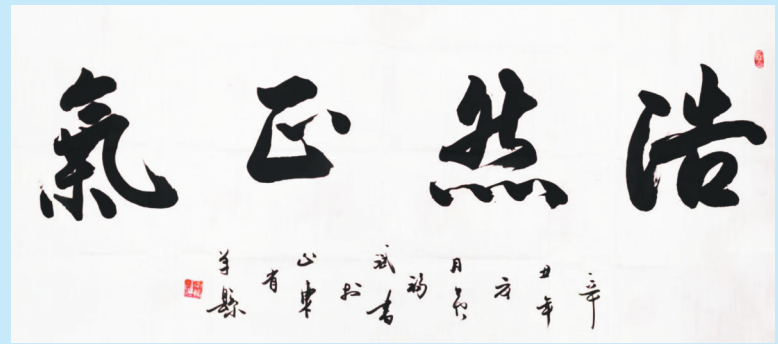 浩然正氣
辛
丑年
方
月
福
斌書
於
山東
省
單縣